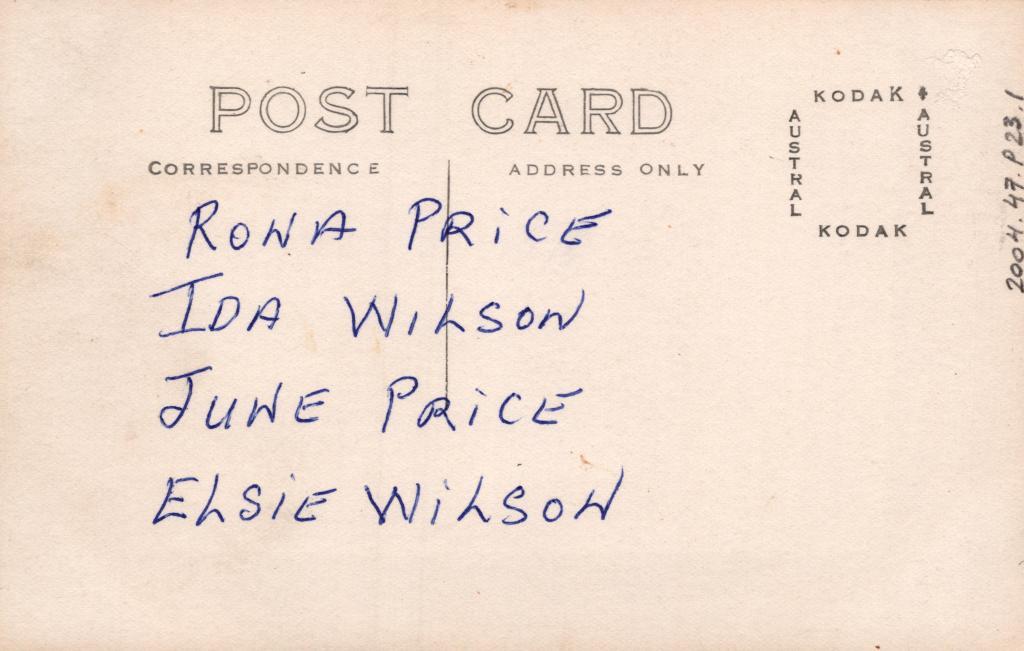 POST CARD
CORRESPONDENCE
ADDRESS ONLY
KODAK
AUSTRAL
AUSTRAL
KODAK
2004.47.P23.1
RONA PRiCE
IDA WILSON
JUNE PRiCE
ELSiE WiLSON